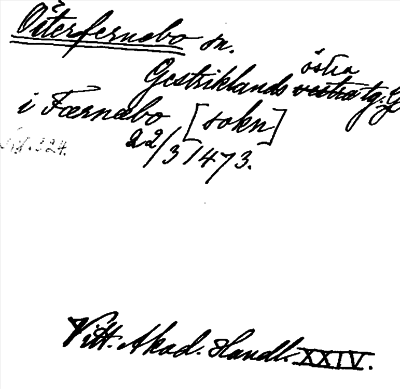 Österfernebo sn.
östra
Gestriklands vestra tg. G
i Færnabo [sokn]
22/3 1473.
Vitt. Akad. Handl. XXIV.